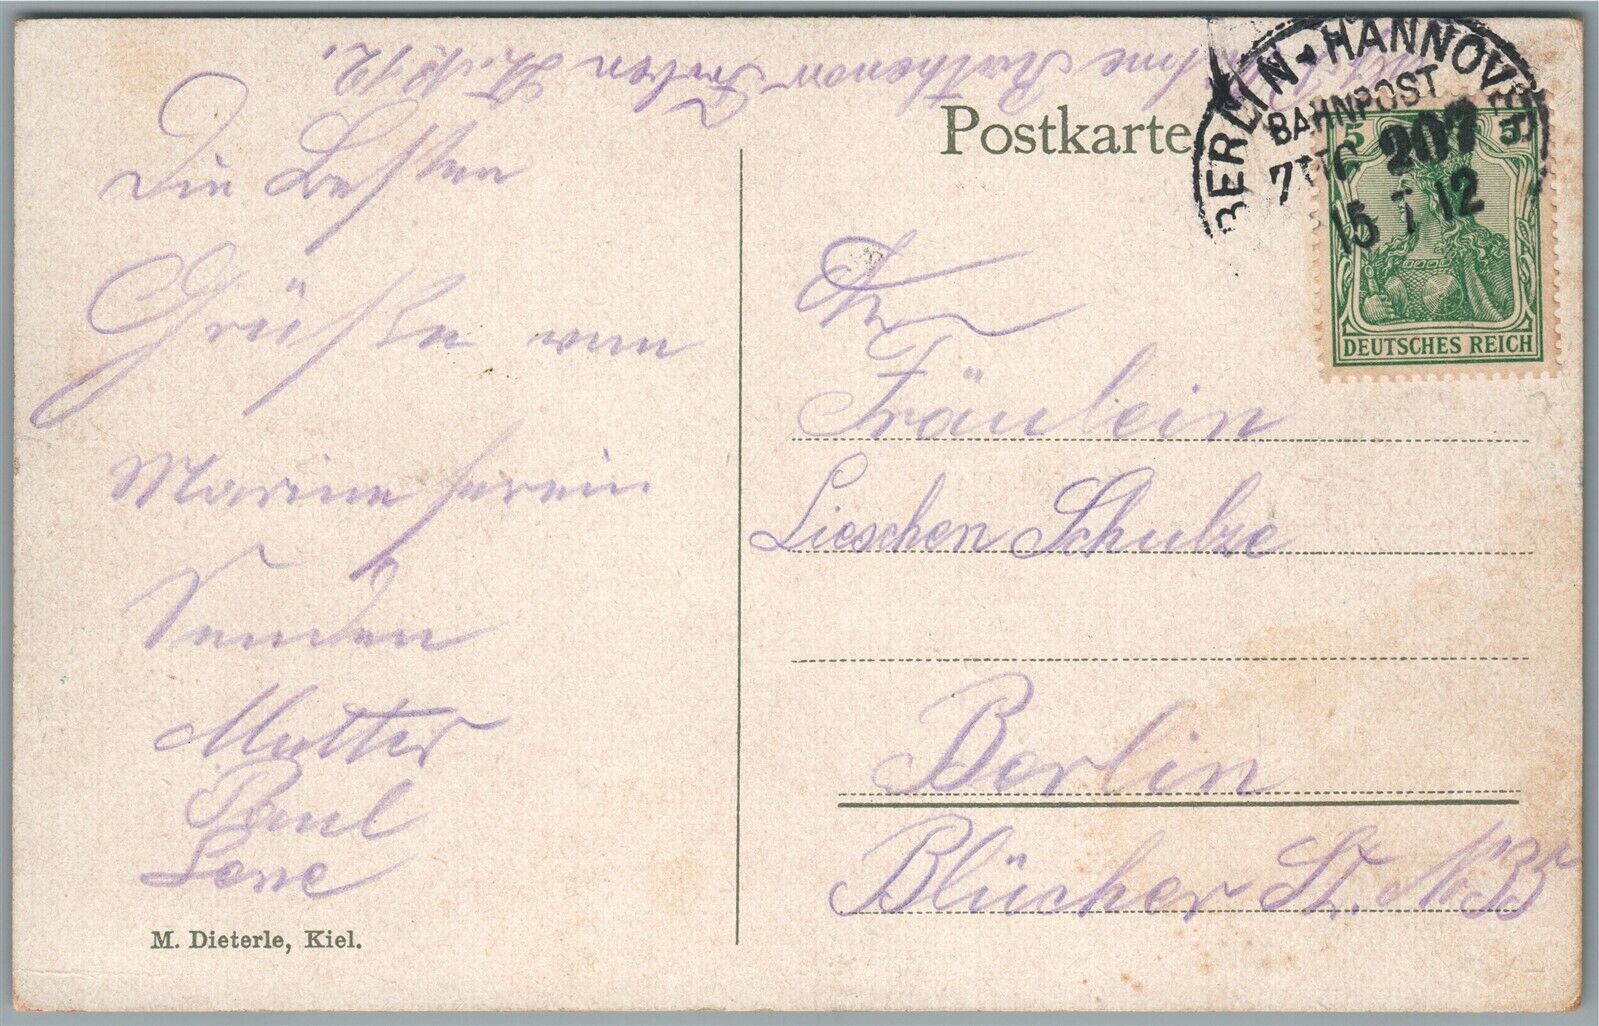 Rathenow St. No 12.
Postkarte
BERLIN HANNOVER
BAHNPOST
ZUG 207
15 7 12
5 5
DEUTSCHES REICH
Die Besten
Grüße vom
Marine Verein
Senden
Mutter
Paul
Lene
An
Fräulein
Lieschen Schulze
Berlin
Blücher St. No 35
M. Dieterle, Kiel.